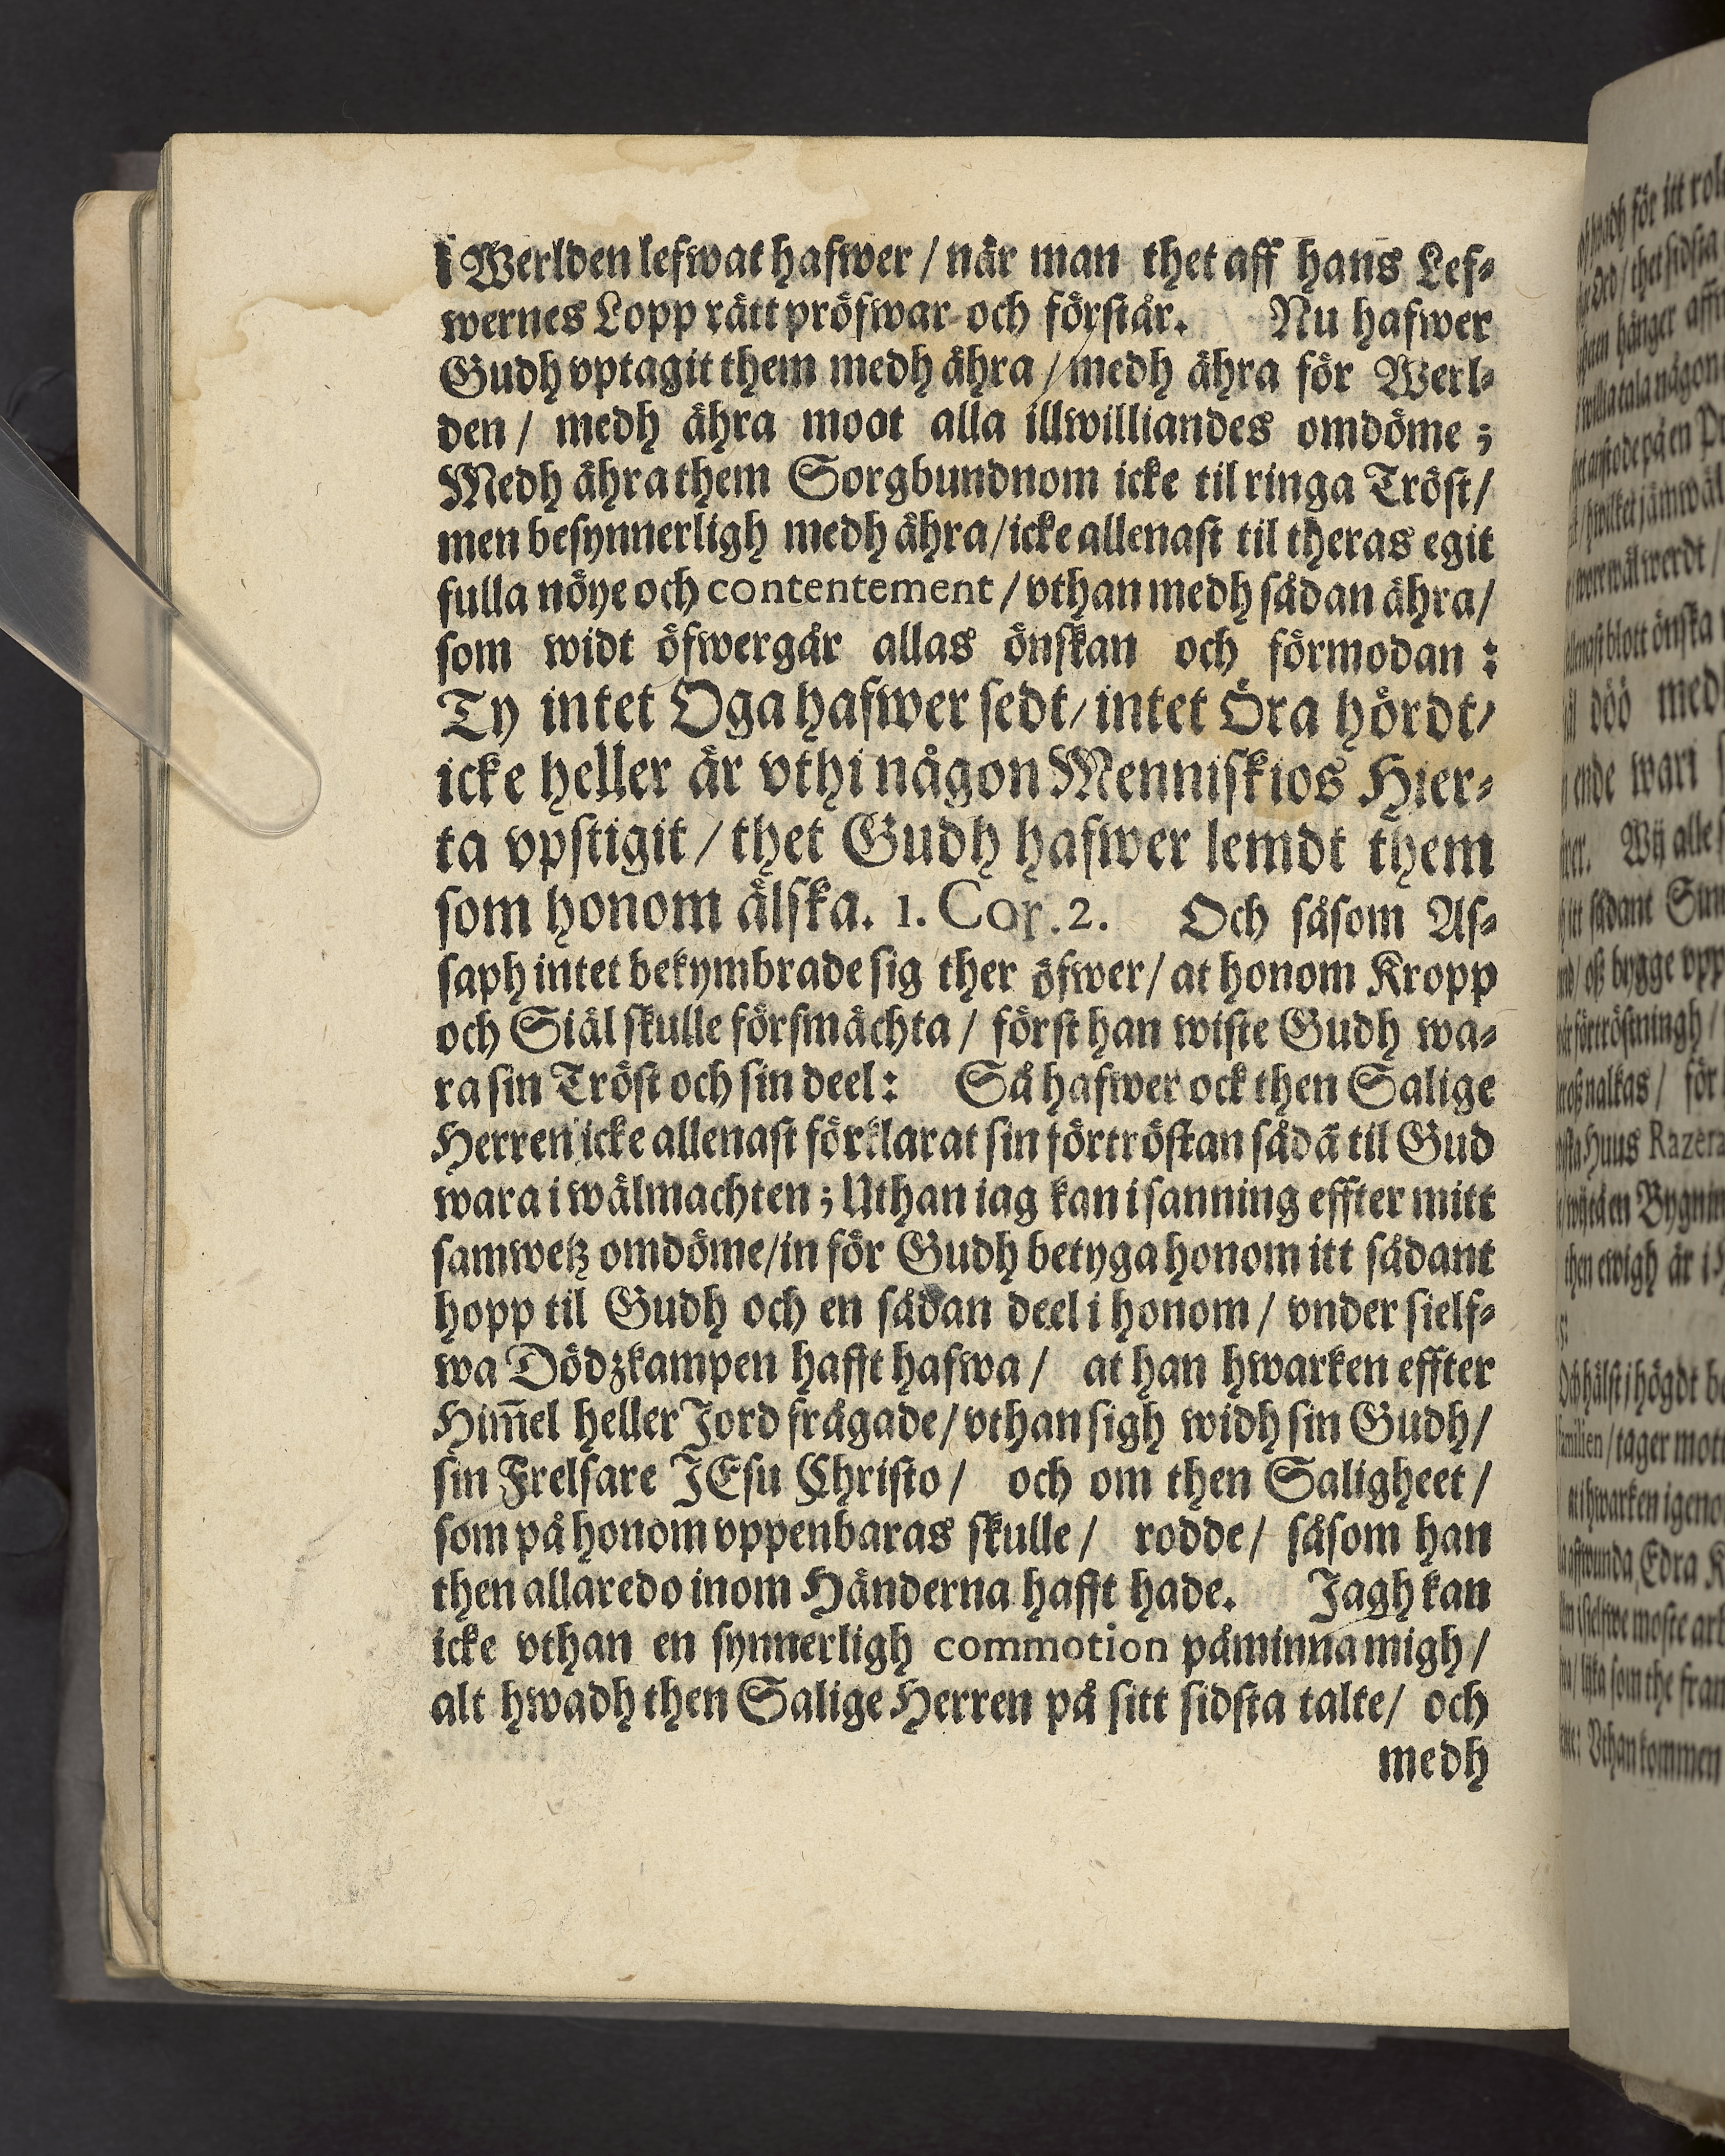 i Werlden lefwat hafwer / när man thet aff hans Lef-
wernes Lopp rätt pröfwar och förstår. Nu hafwer
Gudh vptagit them medh ähra / medh ähra för Werl-
den / medh ähra moot alla illwilliandes omdöme ;
Medh ähra them Sorgbundnom icke til ringa Tröst /
men besynnerligh medh ähra / icke allenast til theras egit
fulla nöye och contentement / vthan medh sådan ähra /
som widt öfwergår allas önskan och förmodan :
Ty intet Oga hafwer sedt / intet Öra hördt /
icke heller är vthi någon Menniskios Hier-
ta vpstigit / thet Gudh hafwer lemdt them
som honom älska. 1. Cor. 2. Och såsom As-
saph intet bekymbrade sig ther öfwer / at honom Kropp
och Siäl skulle försmächta / först han wiste Gudh wa-
ra sin Tröst och sin deel : Så hafwer ock then Salige
Herren icke allenast förklarat sin förtröstan sådā til Gud
wara i wälmachten ; Uthan iag kan i sanning effter mitt
samwetz omdöme / in för Gudh betyga honom itt sådant
hopp til Gudh och en sådan deel i honom / vnder sielf-
wa Dödzkampen hafft hafwa / at han hwarken effter
Him̄el heller Jord frågade / vthan sigh widh sin Gudh /
sin Frelsare JEsu Christo / och om then Saligheet /
som på honom vppenbaras skulle / rodde / såsom han
then allaredo inom Händerna hafft hade. Jagh kan
icke vthan en synnerligh commotion påminna migh /
alt hwadh then Salige Herren på sitt sidsta talte / och
medh